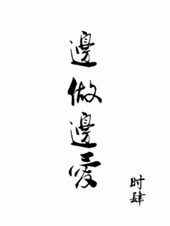 邊做邊愛
时肆